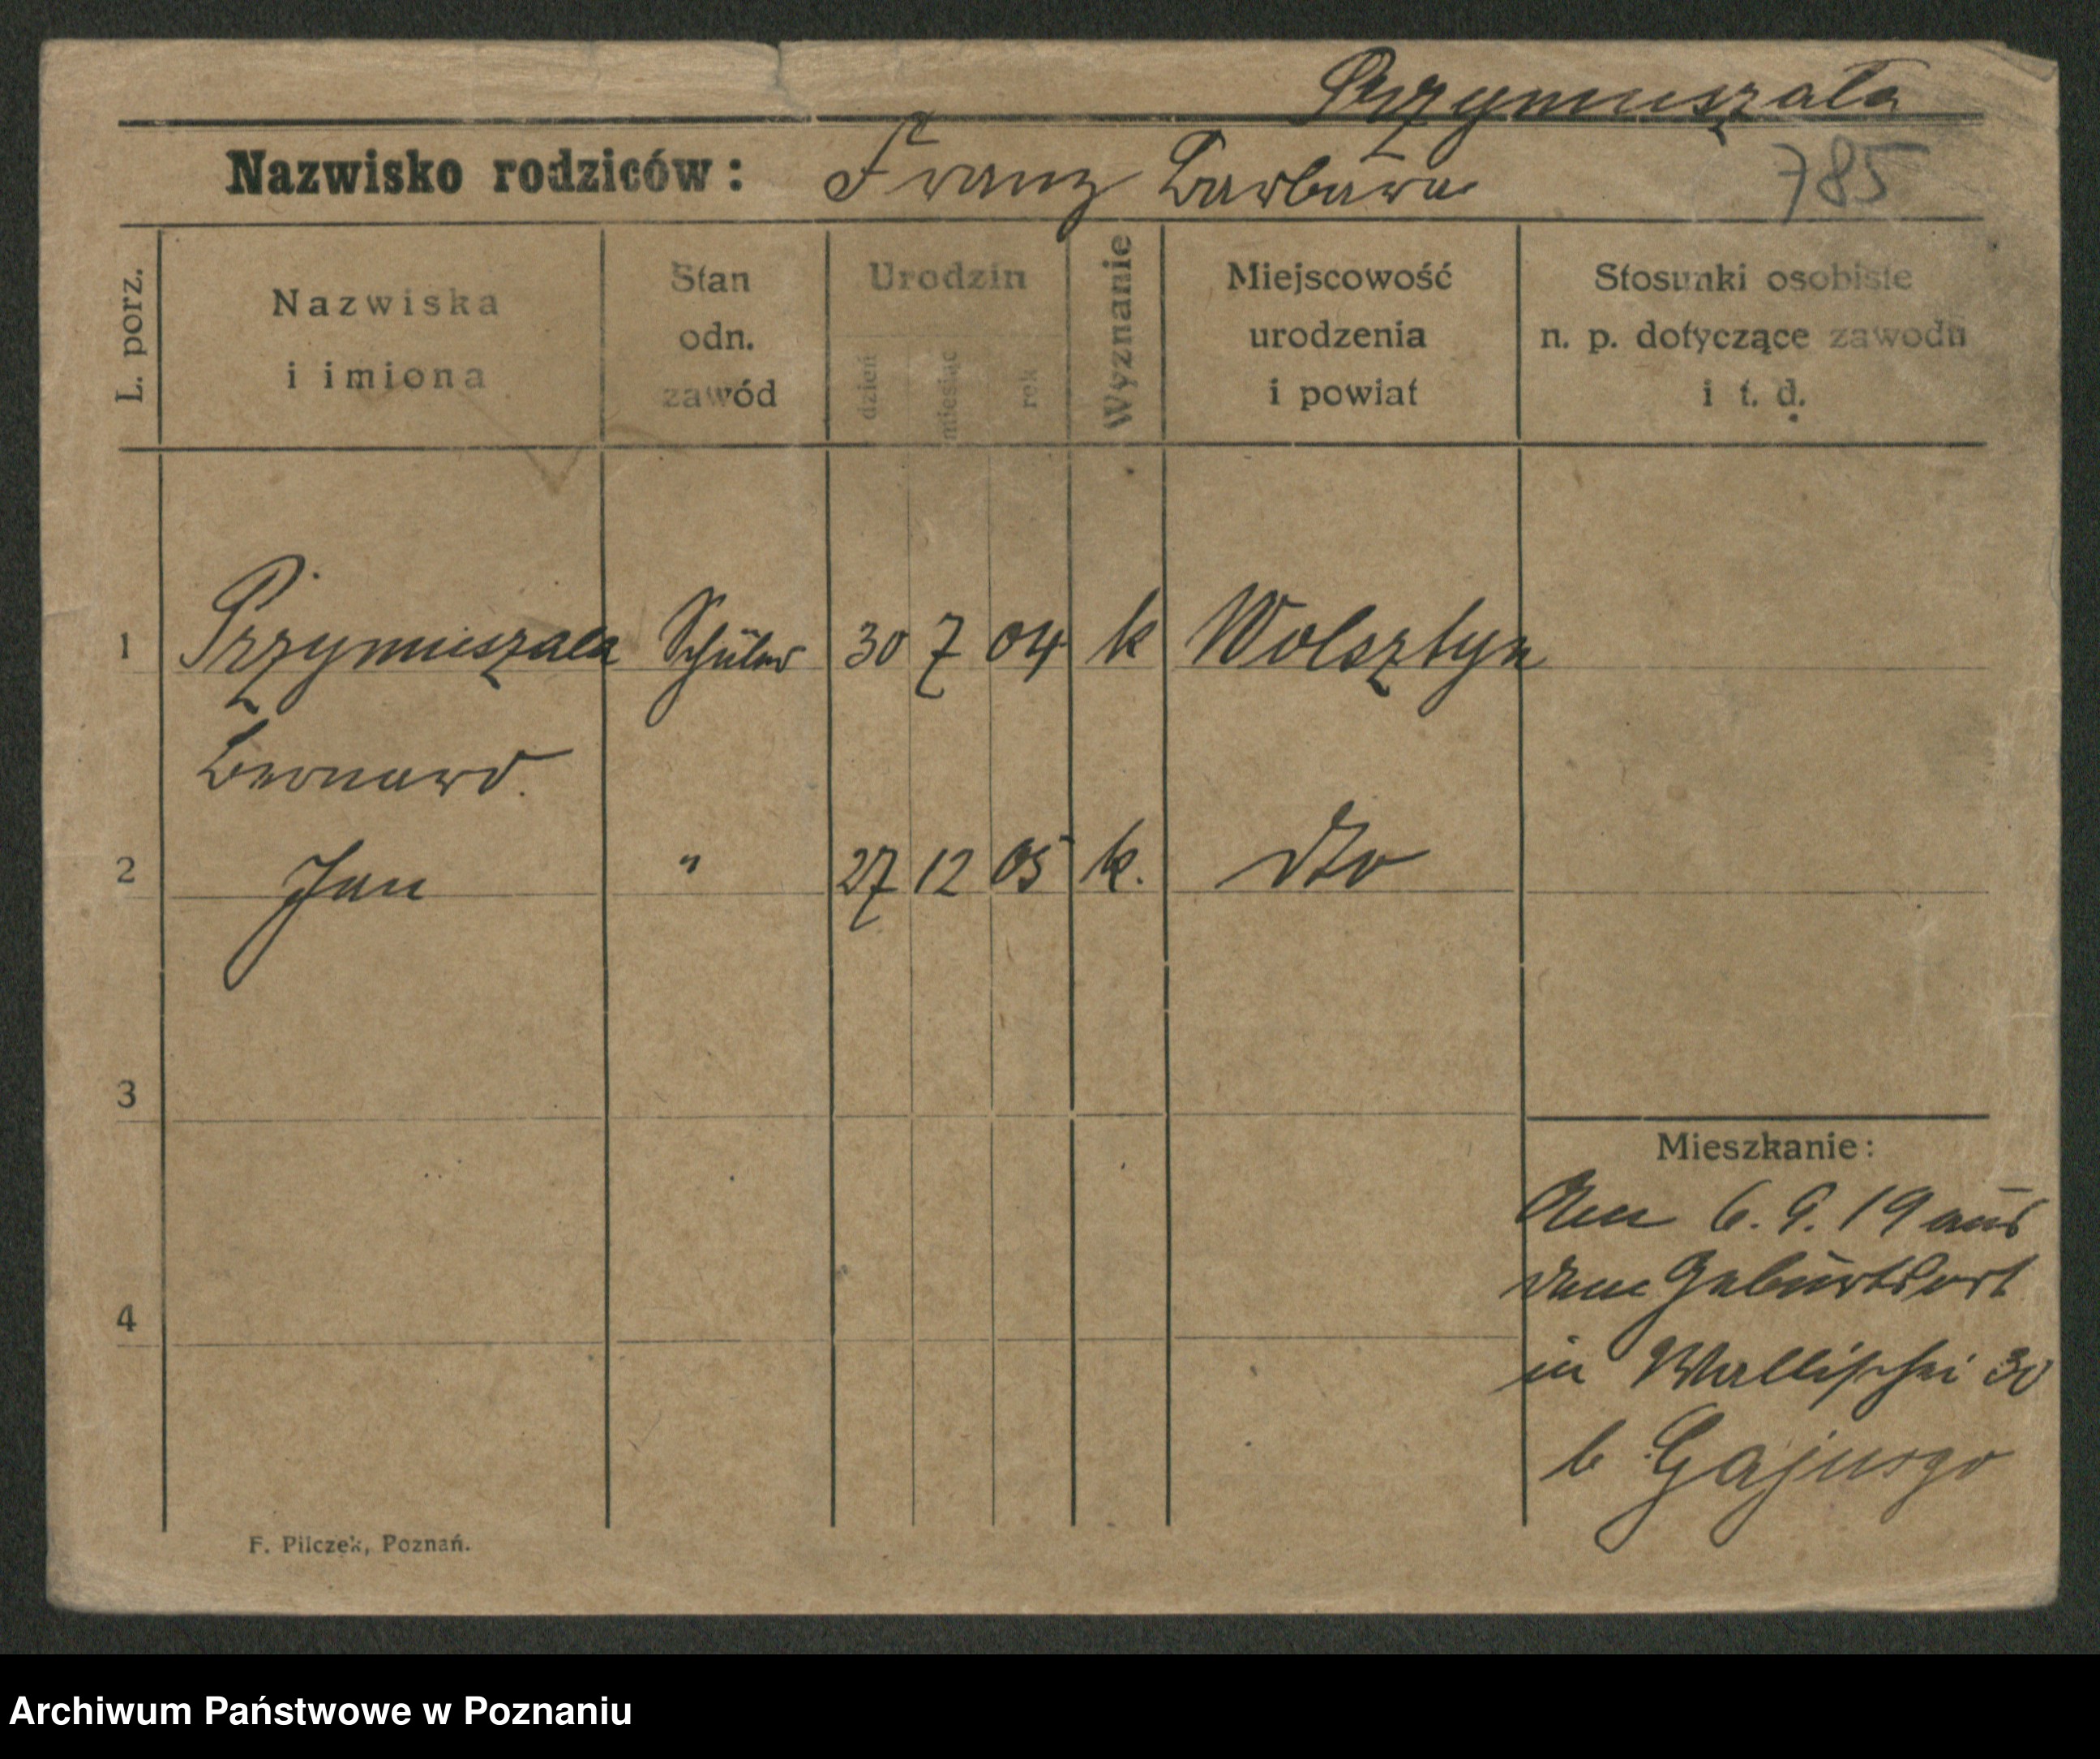 Przymuszała
Nazwisko rodziców: Franz Barbara
785
L. porz.
Nazwiska
i imiona
Stan
odn.
zawód
Urodzin
dzień
miesiąc
rok
Wyznanie
Miejscowość
urodzenia
i powiat
Stosunki osobiste
n. p. dotyczące zawodu
i t. d.
1 Przymuszała Schüler 30 7 04 k Wolsztyn
Bernard.
2 Jan " 27 12 05 k. dto
3
4
Mieszkanie:
Am 6. 9. 19 aus
dem Geburtsort
in Wallischei 30
b
F. Pilczek, Poznań.
Archiwum Państwowe w Poznaniu